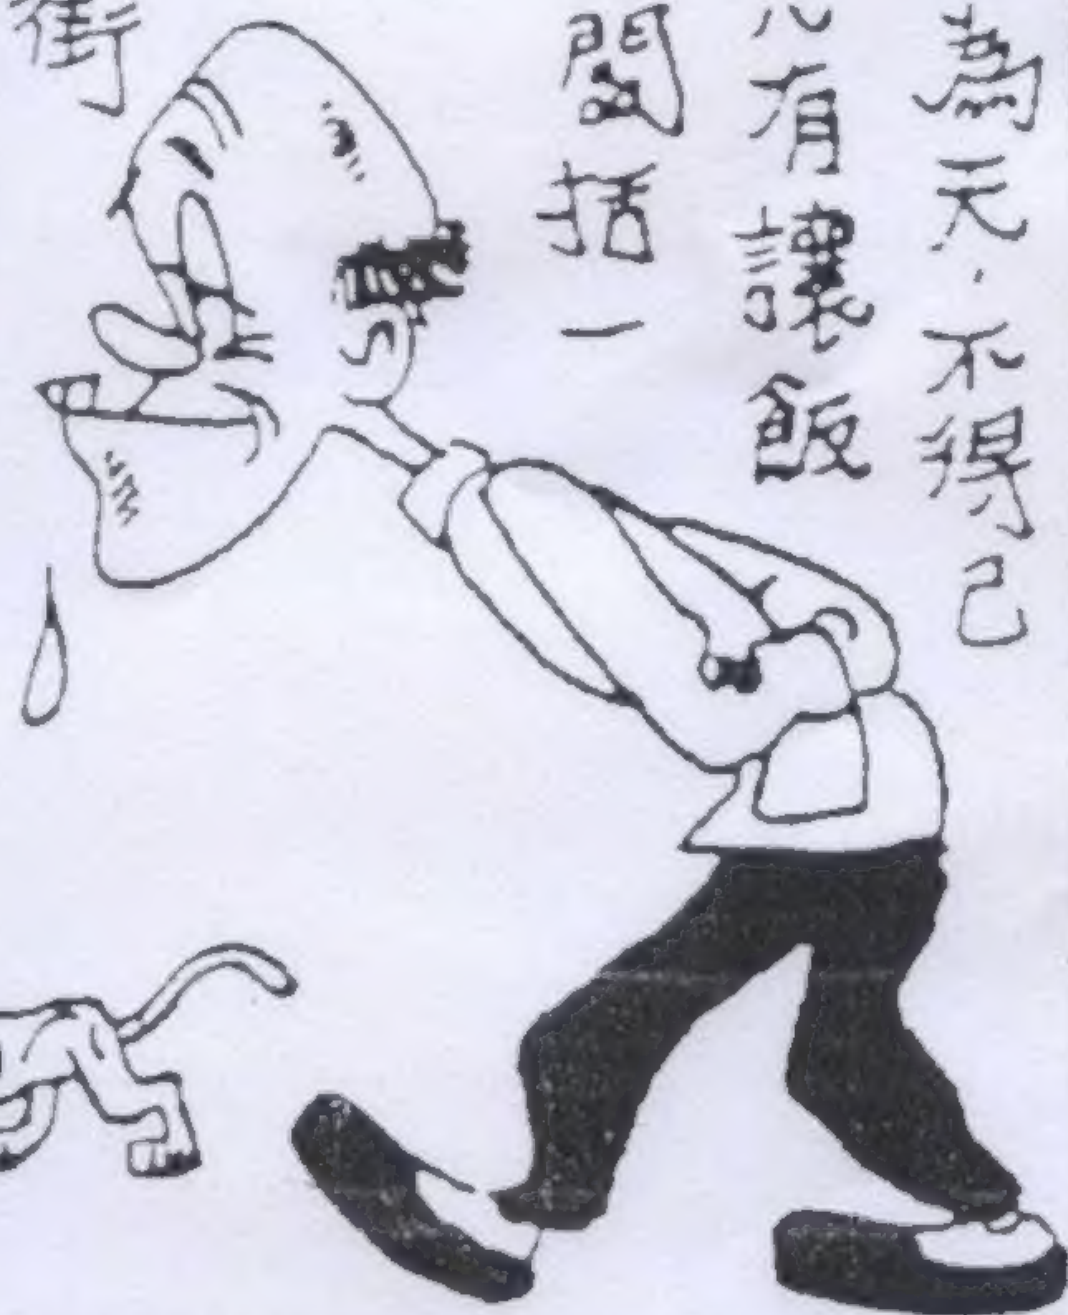 為天．不得己
有讓飯
閱括一
街